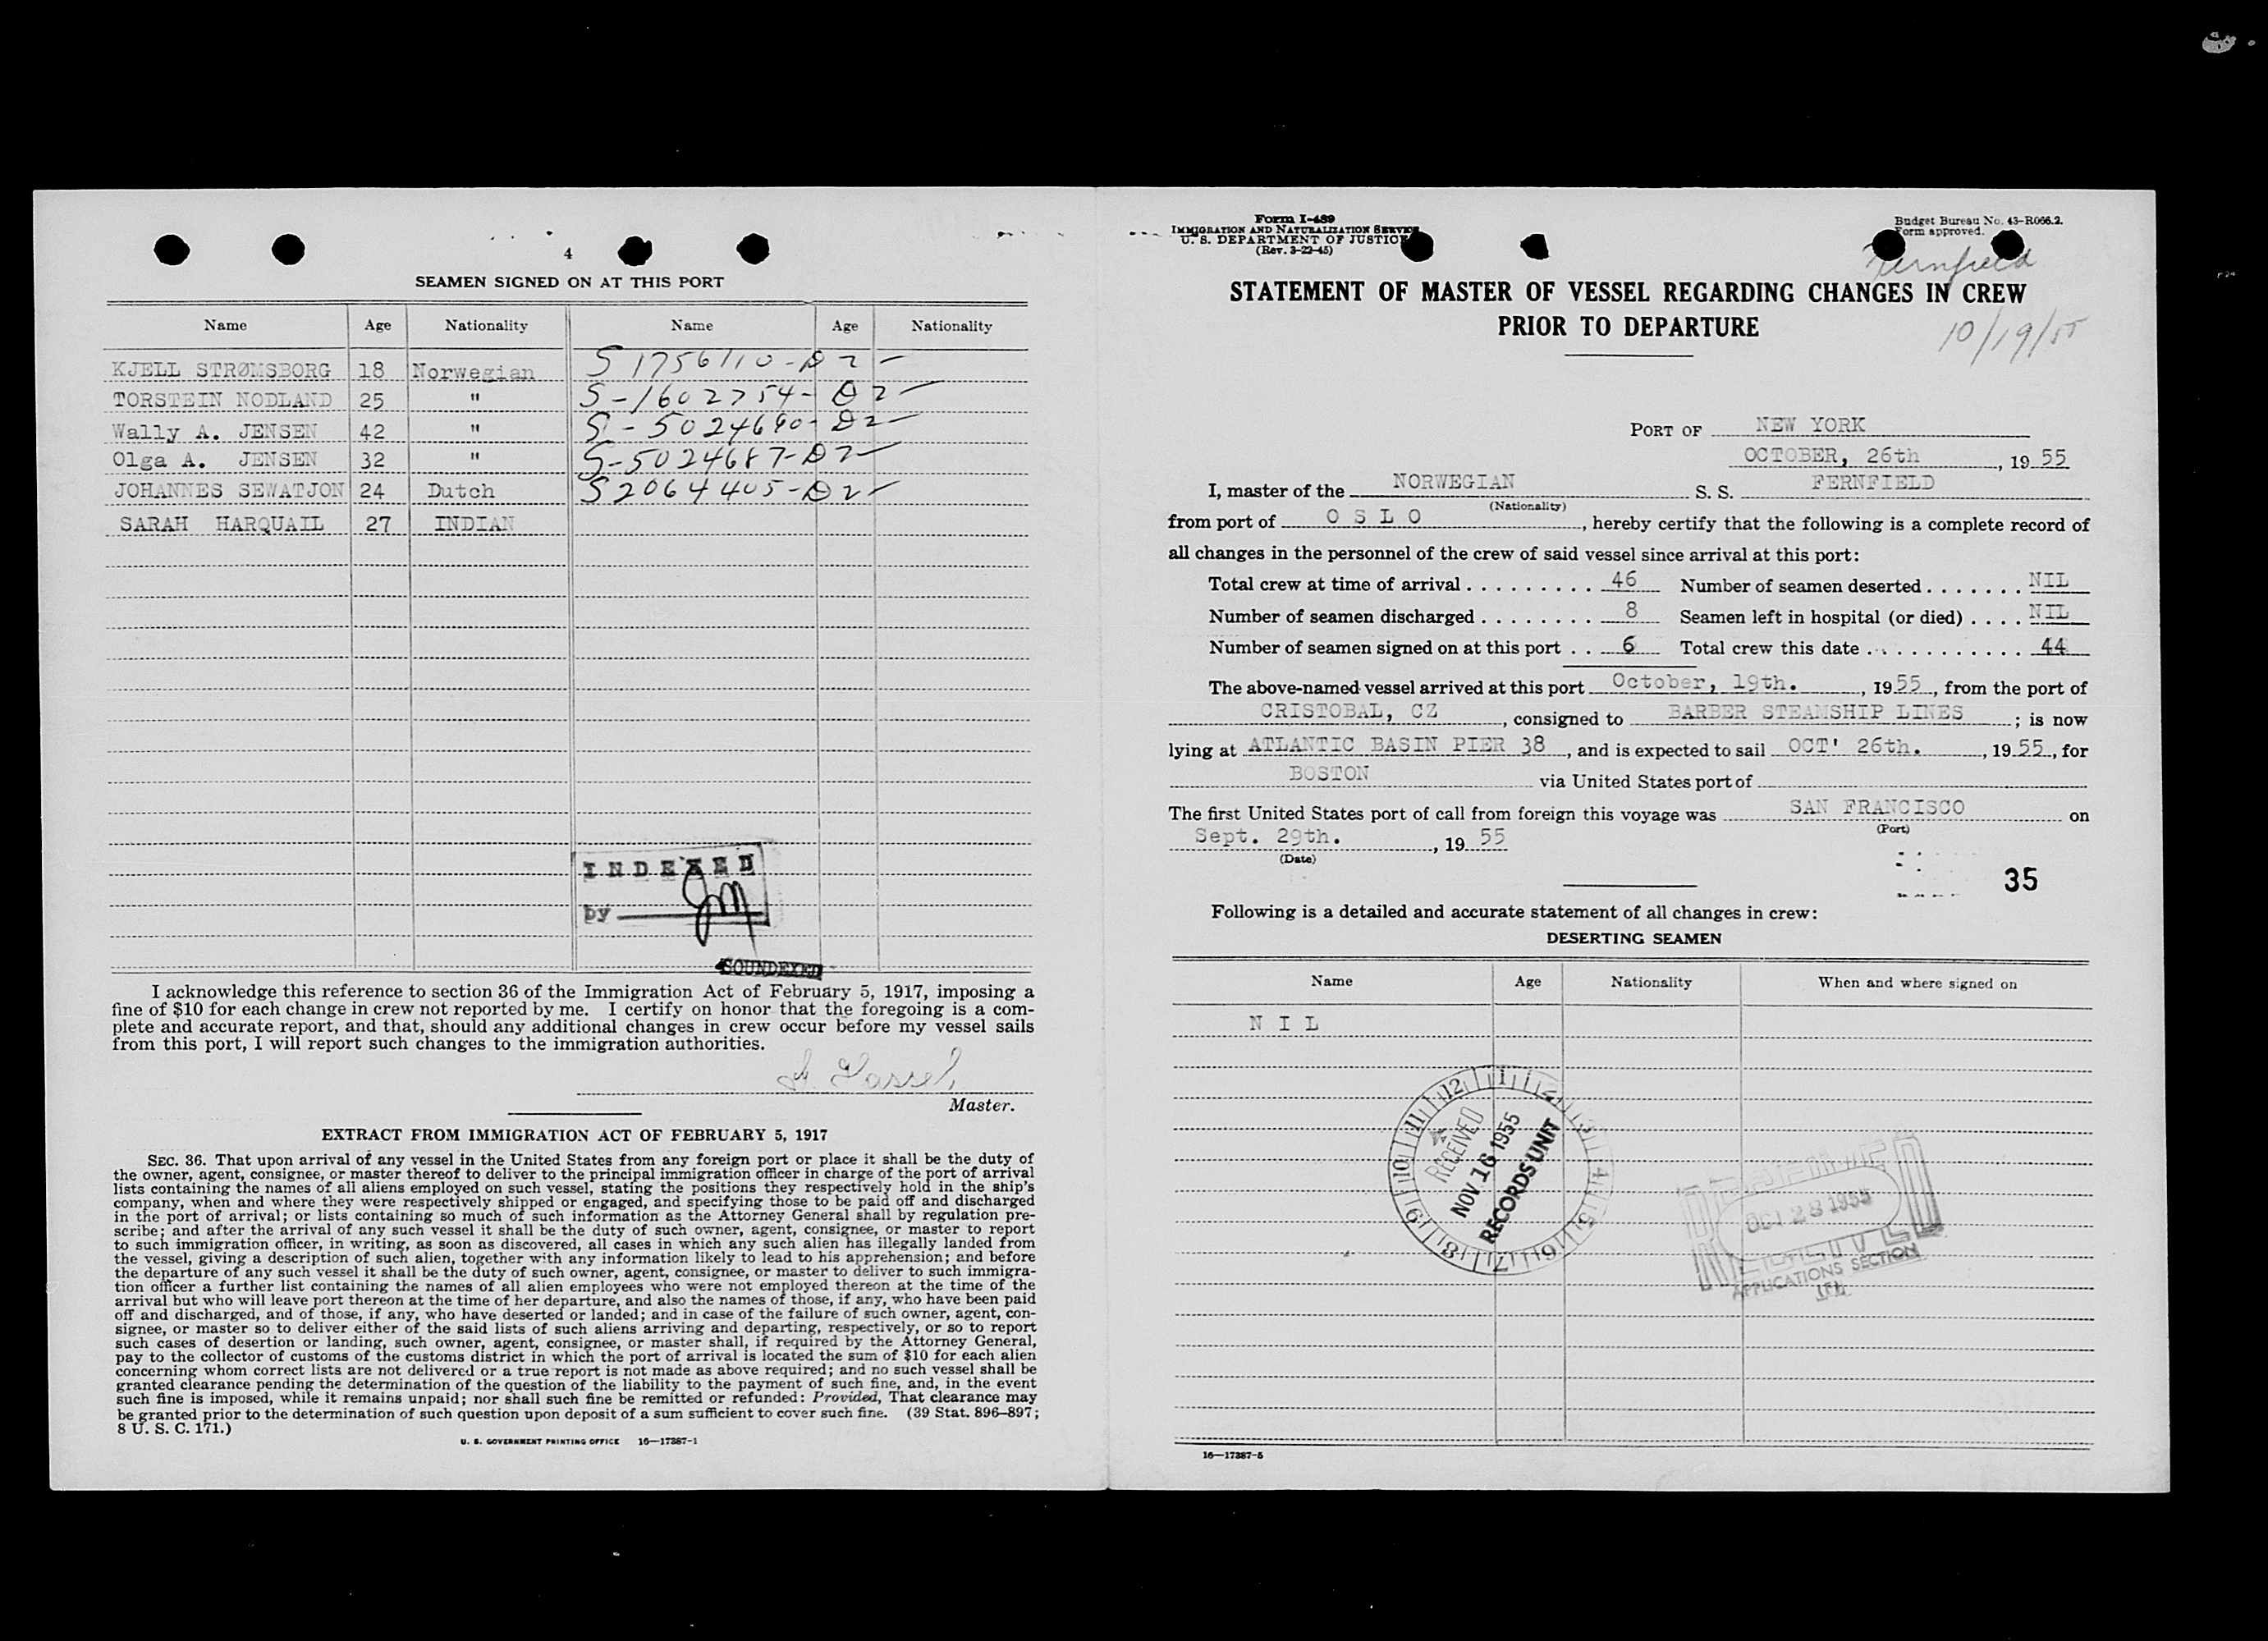 4
SEAMEN SIGNED ON AT THIS PORT
Name Age Nationality Name Age Nationality
KJELL STRØMSBORG 18 Norwegian S 1756110-D2-
TORSTEIN NODLAND 25 " S-1602754-D2-
Wally A. JENSEN 42 " S-5024690-D2-
Olga A. JENSEN 32 " S-5024687-D2-
JOHANNES SEWATJON 24 Dutch S2064405-D2-
SARAH HARQUAIL 27 INDIAN
INDEXED
by
SOUNDEXED
I acknowledge this reference to section 36 of the Immigration Act of February 5, 1917, imposing a
fine of $10 for each change in crew not reported by me. I certify on honor that the foregoing is a com-
plete and accurate report, and that, should any additional changes in crew occur before my vessel sails
from this port, I will report such changes to the immigration authorities.
Master.
EXTRACT FROM IMMIGRATION ACT OF FEBRUARY 5, 1917
SEC. 36. That upon arrival of any vessel in the United States from any foreign port or place it shall be the duty of
the owner, agent, consignee, or master thereof to deliver to the principal immigration officer in charge of the port of arrival
lists containing the names of all aliens employed on such vessel, stating the positions they respectively hold in the ship's
company, when and where they were respectively shipped or engaged, and specifying those to be paid off and discharged
in the port of arrival; or lists containing so much of such information as the Attorney General shall by regulation pre-
scribe; and after the arrival of any such vessel it shall be the duty of such owner, agent, consignee, or master to report
to such immigration officer, in writing, as soon as discovered, all cases in which any such alien has illegally landed from
the vessel, giving a description of such alien, together with any information likely to lead to his apprehension; and before
the departure of any such vessel it shall be the duty of such owner, agent, consignee, or master to deliver to such immigra-
tion officer a further list containing the names of all alien employees who were not employed thereon at the time of the
arrival but who will leave port thereon at the time of her departure, and also the names of those, if any, who have been paid
off and discharged, and of those, if any, who have deserted or landed; and in case of the failure of such owner, agent, con-
signee, or master so to deliver either of the said lists of such aliens arriving and departing, respectively, or so to report
such cases of desertion or landing, such owner, agent, consignee, or master shall, if required by the Attorney General,
pay to the collector of customs of the customs district in which the port of arrival is located the sum of $10 for each alien
concerning whom correct lists are not delivered or a true report is not made as above required; and no such vessel shall be
granted clearance pending the determination of the question of the liability to the payment of such fine, and, in the event
such fine is imposed, while it remains unpaid; nor shall such fine be remitted or refunded: Provided, That clearance may
be granted prior to the determination of such question upon deposit of a sum sufficient to cover such fine. (39 Stat. 896–897;
8 U. S. C. 171.)
U. S. GOVERNMENT PRINTING OFFICE 16—17387-1
Form I-489
IMMIGRATION AND NATURALIZATION SERVICE
U. S. DEPARTMENT OF JUSTICE
(Rev. 3-22-45)
Budget Bureau No. 43-R066.2.
Form approved.
Fernfield
STATEMENT OF MASTER OF VESSEL REGARDING CHANGES IN CREW
PRIOR TO DEPARTURE
10/19/55
PORT OF NEW YORK
OCTOBER, 26th, 1955
I, master of the NORWEGIAN S. S. FERNFIELD
(Nationality)
from port of O S L O, hereby certify that the following is a complete record of
all changes in the personnel of the crew of said vessel since arrival at this port:
Total crew at time of arrival . . . . . . . . . . 46 Number of seamen deserted . . . . . . . NIL
Number of seamen discharged . . . . . . . . 8 Seamen left in hospital (or died) . . . . NIL
Number of seamen signed on at this port . . 6 Total crew this date . . . . . . . . . . . . 44
The above-named vessel arrived at this port October, 19th., 1955, from the port of
CRISTOBAL, CZ, consigned to BARBER STEAMSHIP LINES; is now
lying at ATLANTIC BASIN PIER 38, and is expected to sail OCT' 26th., 1955, for
BOSTON via United States port of
The first United States port of call from foreign this voyage was SAN FRANCISCO on
(Port)
Sept. 29th., 1955
(Date)
35
Following is a detailed and accurate statement of all changes in crew:
DESERTING SEAMEN
Name Age Nationality When and where signed on
N I L
12 1 2 3 4 5 6 7 8 9 10 11
RECEIVED
NOV 16 1955
RECORDS UNIT
OCT 28 1955
RECEIVED
APPLICATIONS SECTION
16—17387-5